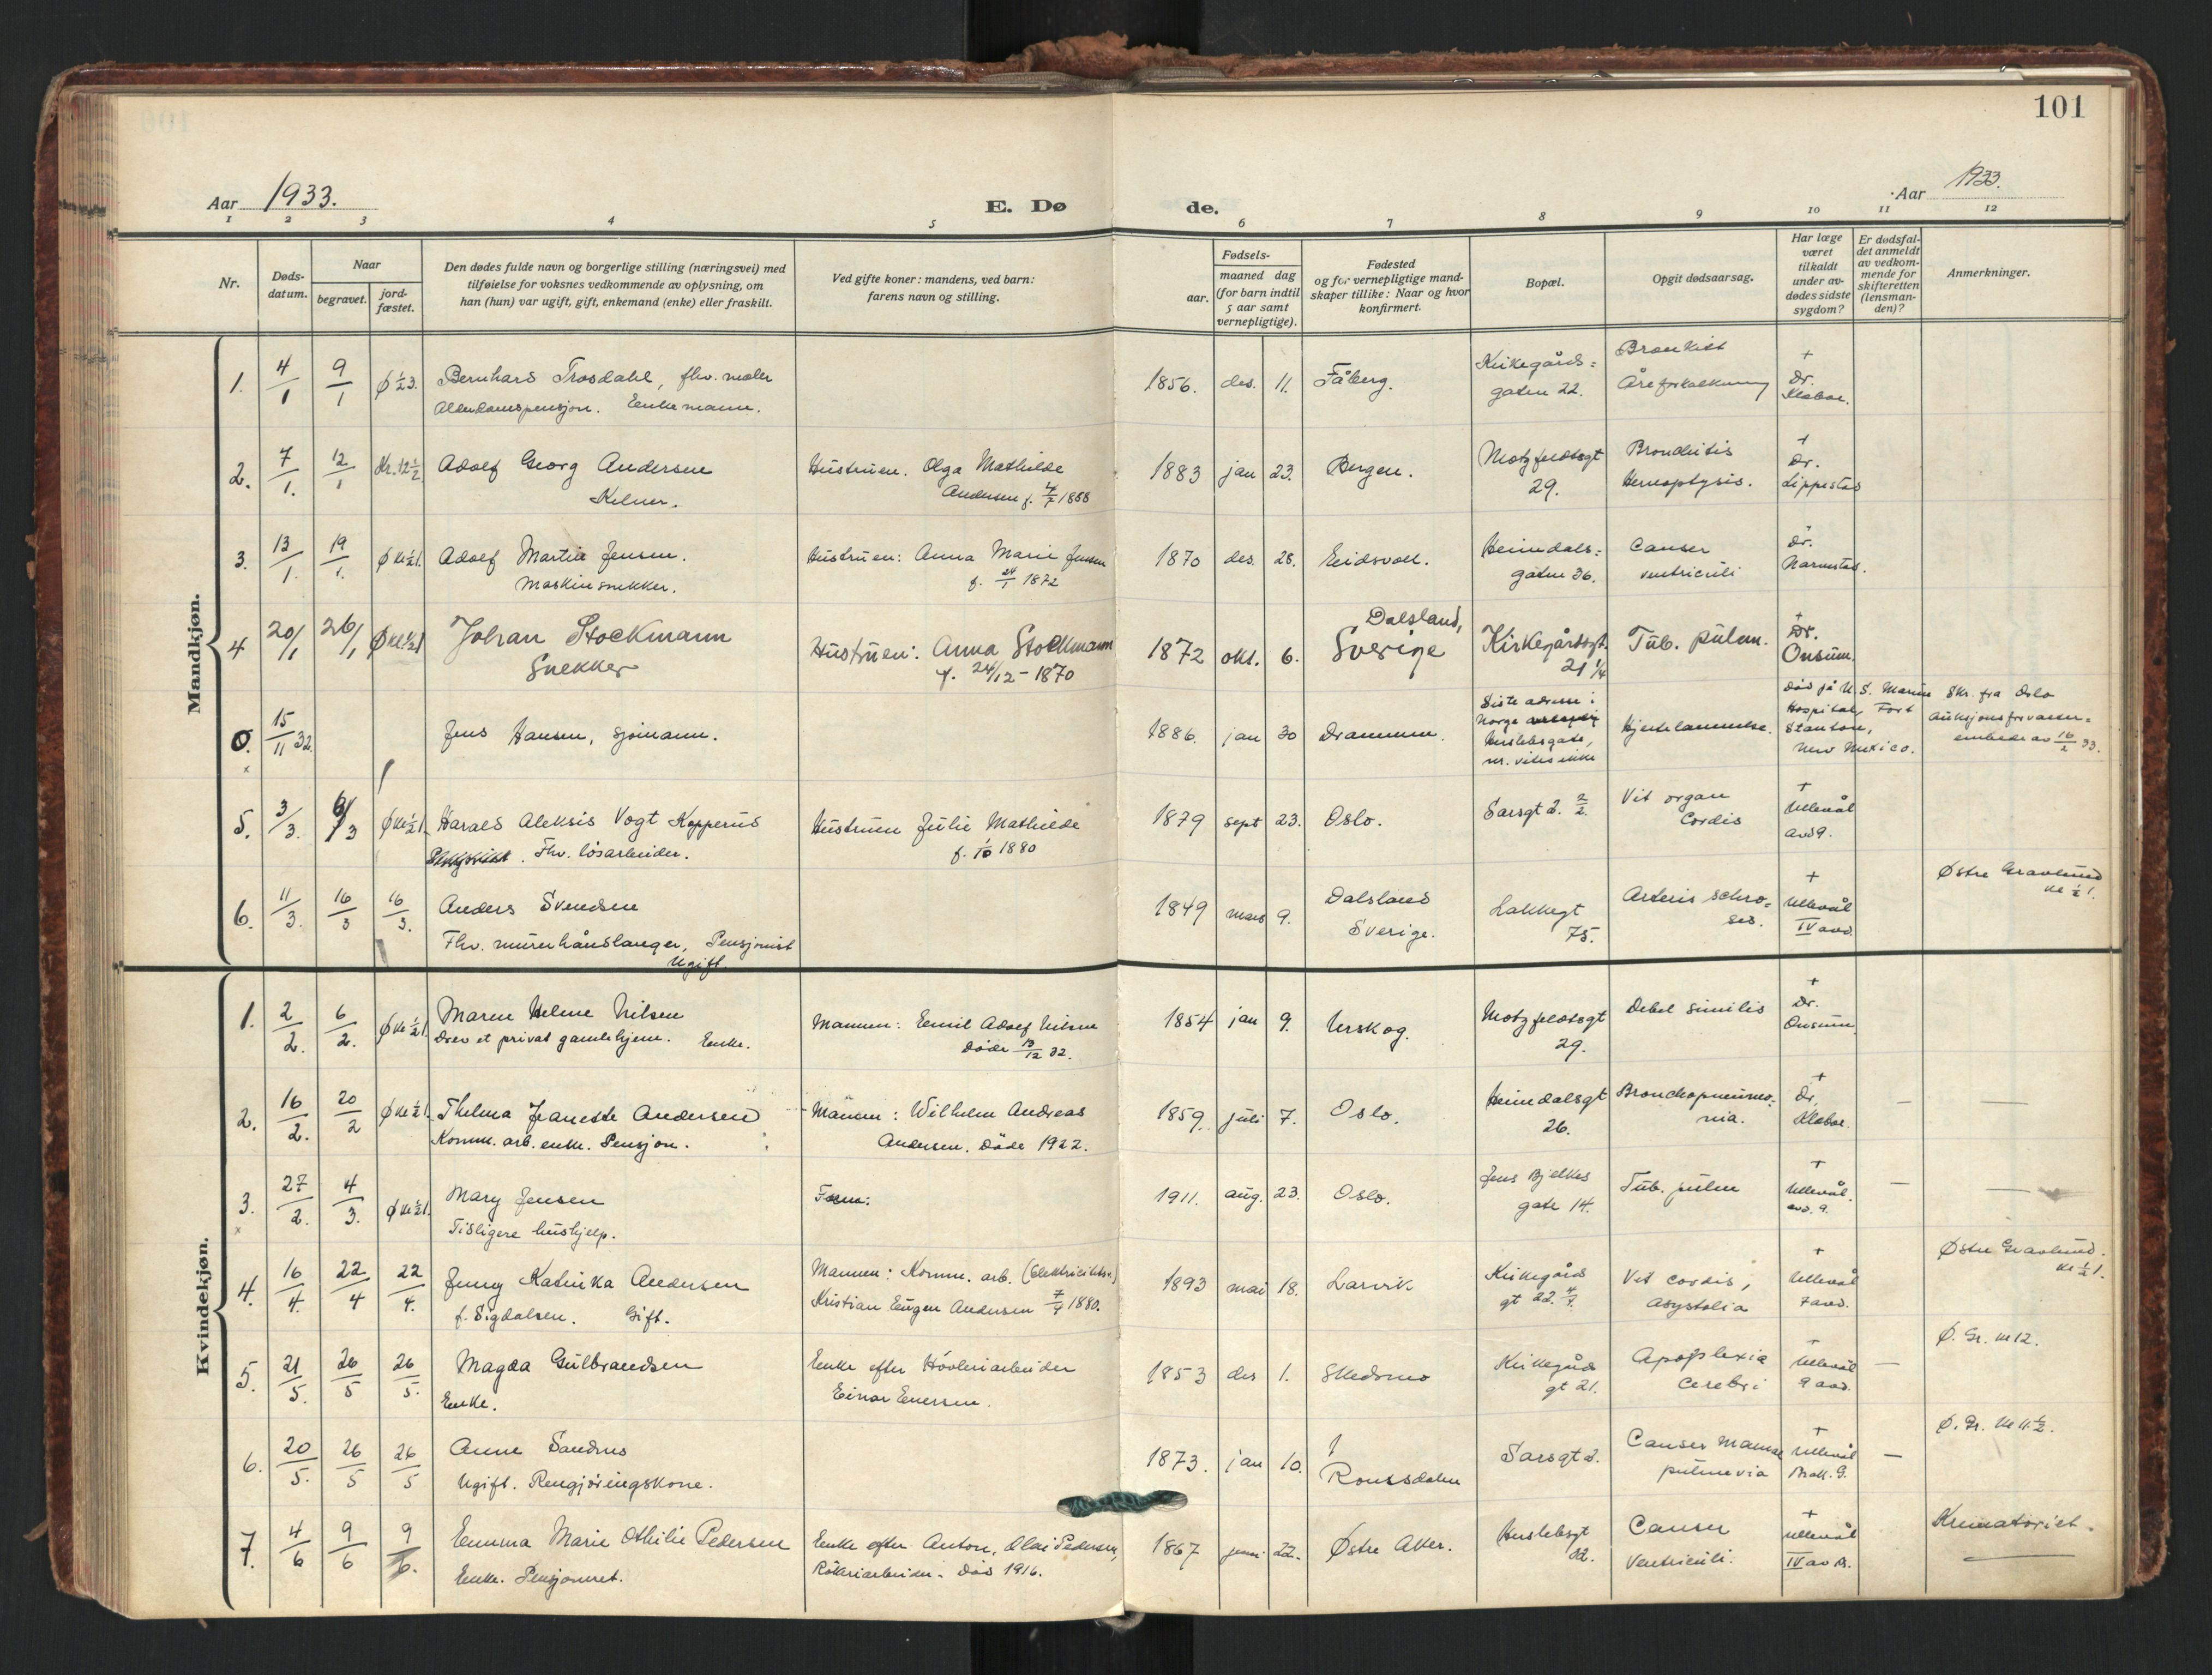 101
Aar 1933.
E. Dø
de.
Aar 1933.
1 2 3 4 5 6 7 8 9 10 11 12
Nr.
Døds-
datum.
Naar
begravet.
jord-
fæstet.
Den dødes fulde navn og borgerlige stilling (næringsvei) med
tilføielse for voksnes vedkommende av oplysning, om
han (hun) var ugift, gift, enkemand (enke) eller fraskilt.
Ved gifte koner: mandens, ved barn:
farens navn og stilling.
Fødsels-
aar.
maaned dag
(for barn indtil
5 aar samt
vernepligtige).
Fødested
og for vernepligtige mand-
skaper tillike: Naar og hvor
konfirmert.
Bopæl.
Opgit dødsaarsag.
Har læge
været
tilkaldt
under av-
dødes sidste
sygdom?
Er dødsfal-
det anmeldt
av vedkom-
mende for
skifteretten
(lensman-
den)?
Anmerkninger.
Mandkjøn.
1. 4/1 9/1 Bernhard Trosdahl, fhv. maler
Enkemann.
1856. des. 11. Fåberg.
Kirkegårds=
gaten 22.
Bronkitt
Åreforkalkning
+
Dr.
2. 7/1. 12/1 Kr. 12½ Adolf Georg Andersen
Kelner.
Hustruen. Olga Mathilde
Andersen f.
1883 jan 23. Bergen.
Motzfeldtsgt
29.
Bronchitis
Hemoptysis.
+
Dr.
Lippestad
3. 13/1. 19/1. Ø kl ½1. Adolf Martin Jensen.
Maskinsnekker.
Hustruen: Anna Marie Jensen
f. 24/1 1872
1870 des. 28. Eidsvoll.
Heimdals=
gaten 36.
Canser
ventriculi
Dr.
Narvestad.
4 20/1 26/1 Ø kl ½1 Johan Stockmann
Snekker
Hustruen: Anna Stockmann
f. 24/12 - 1870
1872 okt. 6. Dalsland,
Sverige
Kirkegårdsgt.
21 ¼
Tub. pulm.
+
Dr.
Onsum.
0. 15/11 32. Jens Hansen, sjømann.
x
1886. jan 30 Drammen.
Siste adresse i
Norge
Herslebsgate,
nr. vites ikke
Hjertelammelse.
Død på U.S. Marine
Hospital, Fort
Stanton,
New Mexico.
Skr. fra Oslo
auksjonsforvalter=
embede av 16/2 33.
5. 3/3. 8/3 Ø kl ½1. Harald Aleksis Vogt Kopperud
Fhv. løsarbeider.
Hustruen Julie Mathilde
f. 1/10 1880
1879 sept 23. Oslo.
Sarsgt 2. 2/2.
Vit organ
Cordis
+
Ullevål
avd 9.
6. 11/3. 16/3 16/3. Anders Svendsen
Fhv. murerhåndlanger, Pensjonist
Ugift.
1849 mars 9. Dalsland
Sverige.
Lakkegt
75.
Arterio schro=
ses.
+
Ullevål
IV avd.
Østre Gravlund
kl ½1.
Kvindekjøn.
1. 2/2. 6/2. Ø kl ½1. Maren Helene Nilsen
Drev et privat gamlehjem. Enke.
Mannen: Emil Adolf Nilsen
døde 13/12 32.
1854 jan 9. Urskog.
Motzfeldtsgt
29.
Debel similis
+
Dr.
Onsum.
2. 16/2. 20/2 Ø kl ½1. Thelma Jeanette Andersen
Komm. arb. enke. Pensjon.
Mannen: Wilhelm Andreas
Andersen. Døde 1922.
1859. juli 7. Oslo.
Heimdalsgt
26.
Bronchopneumo-
nia.
+
Dr.
3. 27/2. 4/3. Ø kl ½1. Mary Jensen
Tidligere hushjelp.
x
1911. aug. 23. Oslo.
Jens Bjelkes
gate 14.
Tub. pulm
+
Ullevål.
avd. 9.
4. 16/4. 22/4 22/4. Jenny Katinka Andersen
f. Sigdalsen. Gift.
Mannen: Komm. arb. (Elektricitetsv.)
Kristian Eugen Andersen 7/4 1880.
1893 mai 18. Larvik
Kirkegårds
gt 22.
Vit cordis,
asystolia
+
Ullevål
7 avd.
Østre Gravlund.
kl ½1.
5. 21/5. 26/5 26/5. Magda Gulbrandsen
Enke.
Enke efter Høvleriarbeider
Einar Enersen.
1853 des 1. Skedsmo
Kirkegårds
gt 21.
Apoplexia
Cerebri
+
Ullevål
9 avd.
Ø. Gr. kl 12.
6. 20/5. 26/5 26/5 Anne Sandnes
Ugift. Rengjøringskone.
1873. jan 10. Romsdalen
Sarsgt 2.
Canser Mamae
+
Ullevål
Ø. Gr. kl 11½.
7. 4/6 9/6 9/6. Emma Marie Othilie Pedersen
Enke. Pensjoneret.
Enke efter Anton, Olai Pedersen,
Død 1916.
1867 juni 22. Østre Aker.
Herslebsgt
22.
Canser
Ventriculi.
+
Ullevål
IV avd.
Krematoriet.